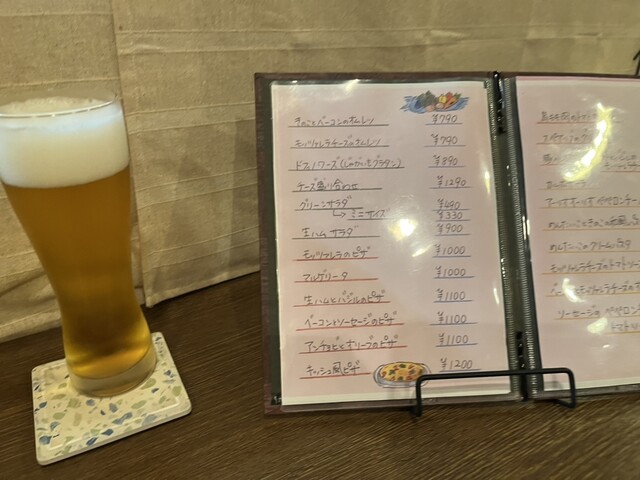 きのことベーコンのオムレツ ¥790
モッツァレラチーズのオムレツ ¥790
ドフィノワーズ(じゃがいもグラタン) ¥890
チーズ盛り合わせ ¥1290
グリーンサラダ ¥490
→ミニサイズ ¥330
生ハムサラダ ¥900
モッツァレラのピザ ¥1000
マルゲリータ ¥1000
生ハムとバジルのピザ ¥1100
ベーコンとソーセージのピザ ¥1100
アンチョビとオリーブのピザ ¥1100
キッシュ風ピザ ¥1200
めんたいこときのこの和風
めんたいこのクリームパスタ
モッツァレラチーズのトマトソー
ソーセージのペペロンチ
トマト